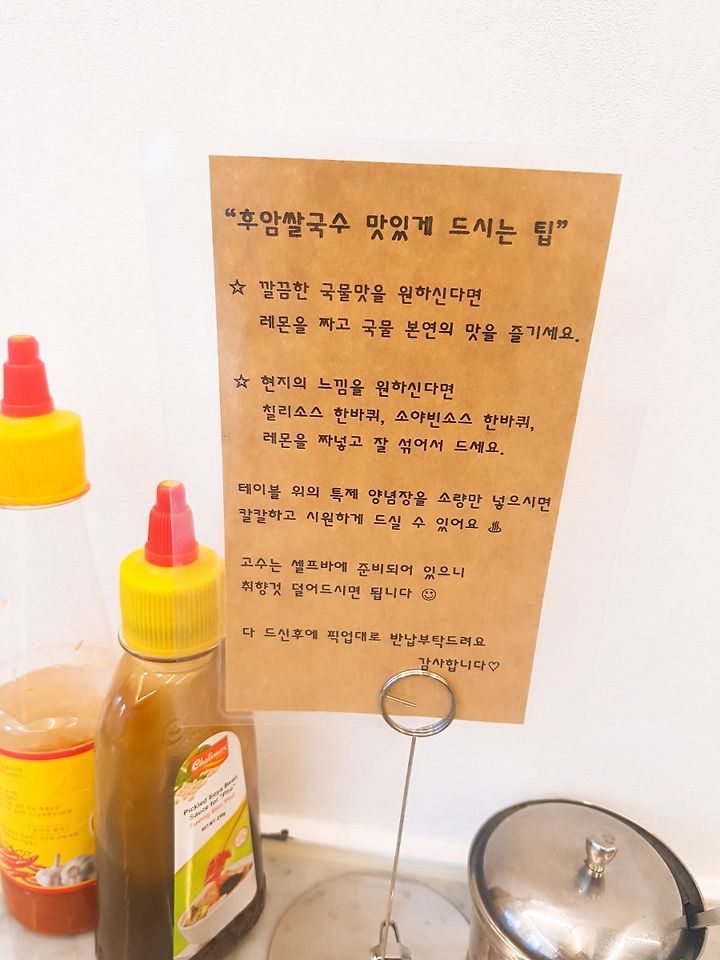 “후암쌀국수 맛있게 드시는 팁”
☆ 깔끔한 국물맛을 원하신다면
레몬을 짜고 국물 본연의 맛을 즐기세요.
☆ 현지의 느낌을 원하신다면
칠리소스 한바퀴, 소야빈소스 한바퀴,
레몬을 짜넣고 잘 섞어서 드세요.
테이블 위의 특제 양념장을 소량만 넣으시면
칼칼하고 시원하게 드실 수 있어요 ♨
고수는 셀프바에 준비되어 있으니
취향껏 덜어드시면 됩니다 ☺
다 드신후에 픽업대로 반납부탁드려요
감사합니다♡
Cholimex
Pickled Soya Bean
Sauce for "Pho"